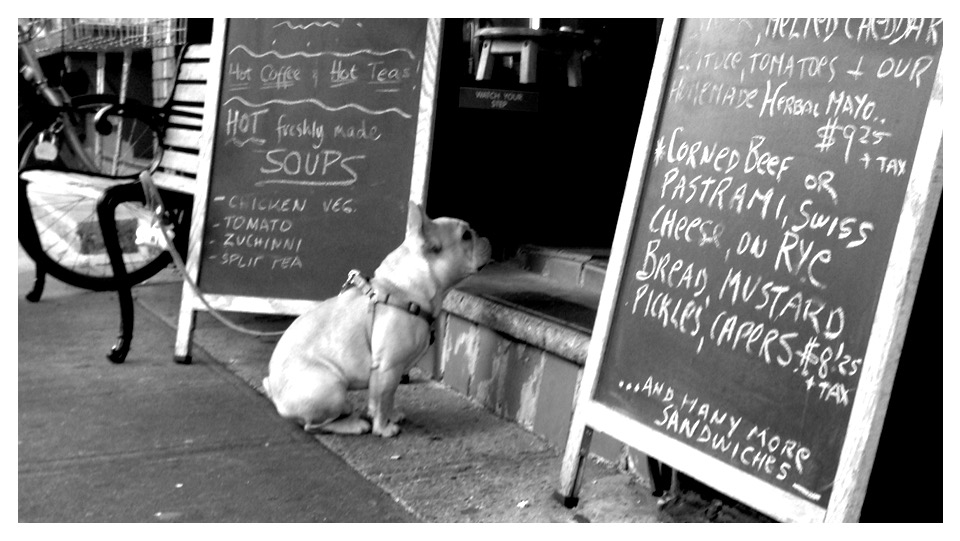 Hot Coffee & Hot Teas
HOT freshly made
SOUPS
- CHICKEN VEG.
- TOMATO
- ZUCHINNI
- SPLIT PEA
WATCH YOUR
STEP
, MELTED CHEDDAR
LETTUCE, TOMATOES + OUR
HOMEMADE HERBAL MAYO..
$9.25
+ TAX
*CORNED BEEF OR
PASTRAMI, SWISS
CHEESE, ON RYE
BREAD, MUSTARD
PICKLES, CAPERS $8.25
+ TAX
...AND MANY MORE
SANDWICHES